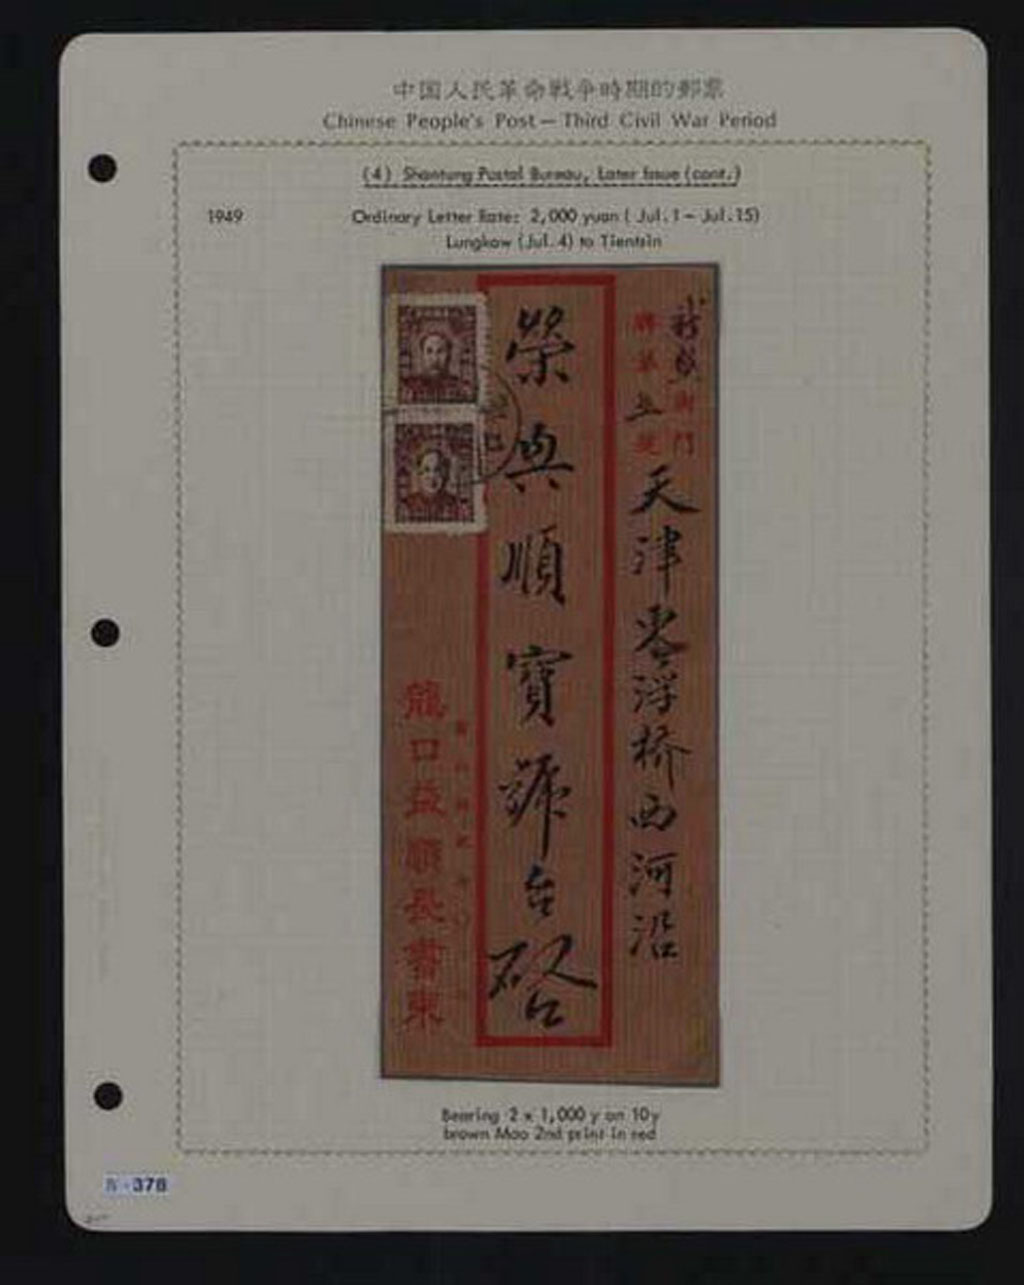 中国人民革命戦争時期的郵票
Chinese People's Post — Third Civil War Period
(4) Shantung Postal Bureau, Later Issue (cont.)
1949
Ordinary Letter Rate: 2,000 yuan ( Jul. 1 - Jul. 15)
Lungkow (Jul. 4) to Tientsin
門
天津 浮桥西河沿
榮興順寶號台啓
龍口益順長書柬
Bearing 2 x 1,000 y on 10 y
brown Mao 2nd print in red
378